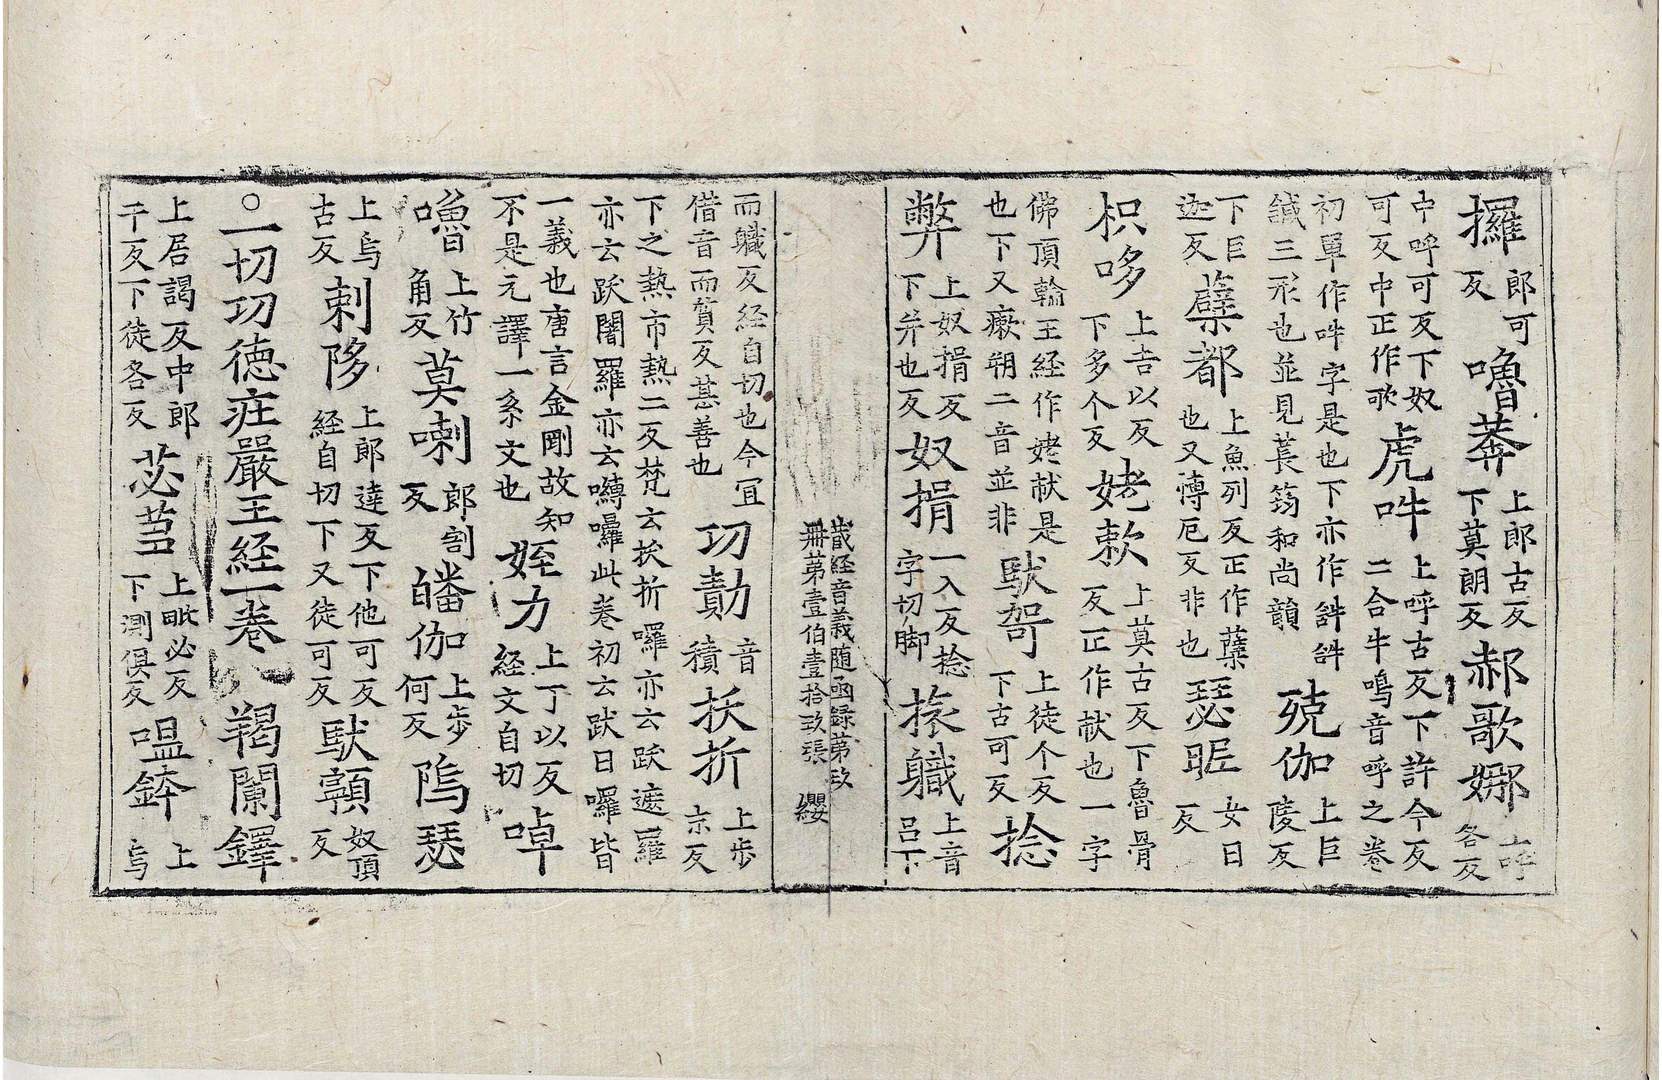 攞郎可反嚕莽上郎古反下莫朗反郝歌娜上呼各反
中呼可反下奴可反中正作歌虎吽上呼古反下許今反二合牛鳴音呼之卷
初單作吽字是也下亦作鍼三形也並見萇筠和尚韻殑伽上巨陵反
下巨迦反蘖都上魚列反正作蘖也又慱厄反非也瑟昵女日反
枳哆上吉以反下多个反姥欶上莫古反下魯骨反正作献也一字
佛頂輪王経作姥献是也下又瘶朔二音並非馱哿上徒个反下古可反捻
弊上奴捐反下并也反奴捐一入反捻字切脚捼軄上音呂下
藏経音義随函録第玖冊第壹伯壹拾玖張 纓
而軄反経自切也今冝借音而質反甚善也㓛勣音積扷折上步末反
下之熱市熱二反梵云扷折囉亦云跃遮羅亦云跃闍羅亦云嚩囉此卷初云跋日囉皆
一義也唐言金剛故知不是元譯一系文也姪力上丁以反経文自切啅
嚕上竹角反莫喇郎割反皤伽上步何反隖瑟
上烏古反剌陊上郎達反下他可反経自切下又徒可反馱顊奴頂反
○一切㓛徳庄嚴王経一卷羯闌鐸
上居謁反中郎干反下徒各反苾芻上毗必反下測俱反嗢鉢上烏